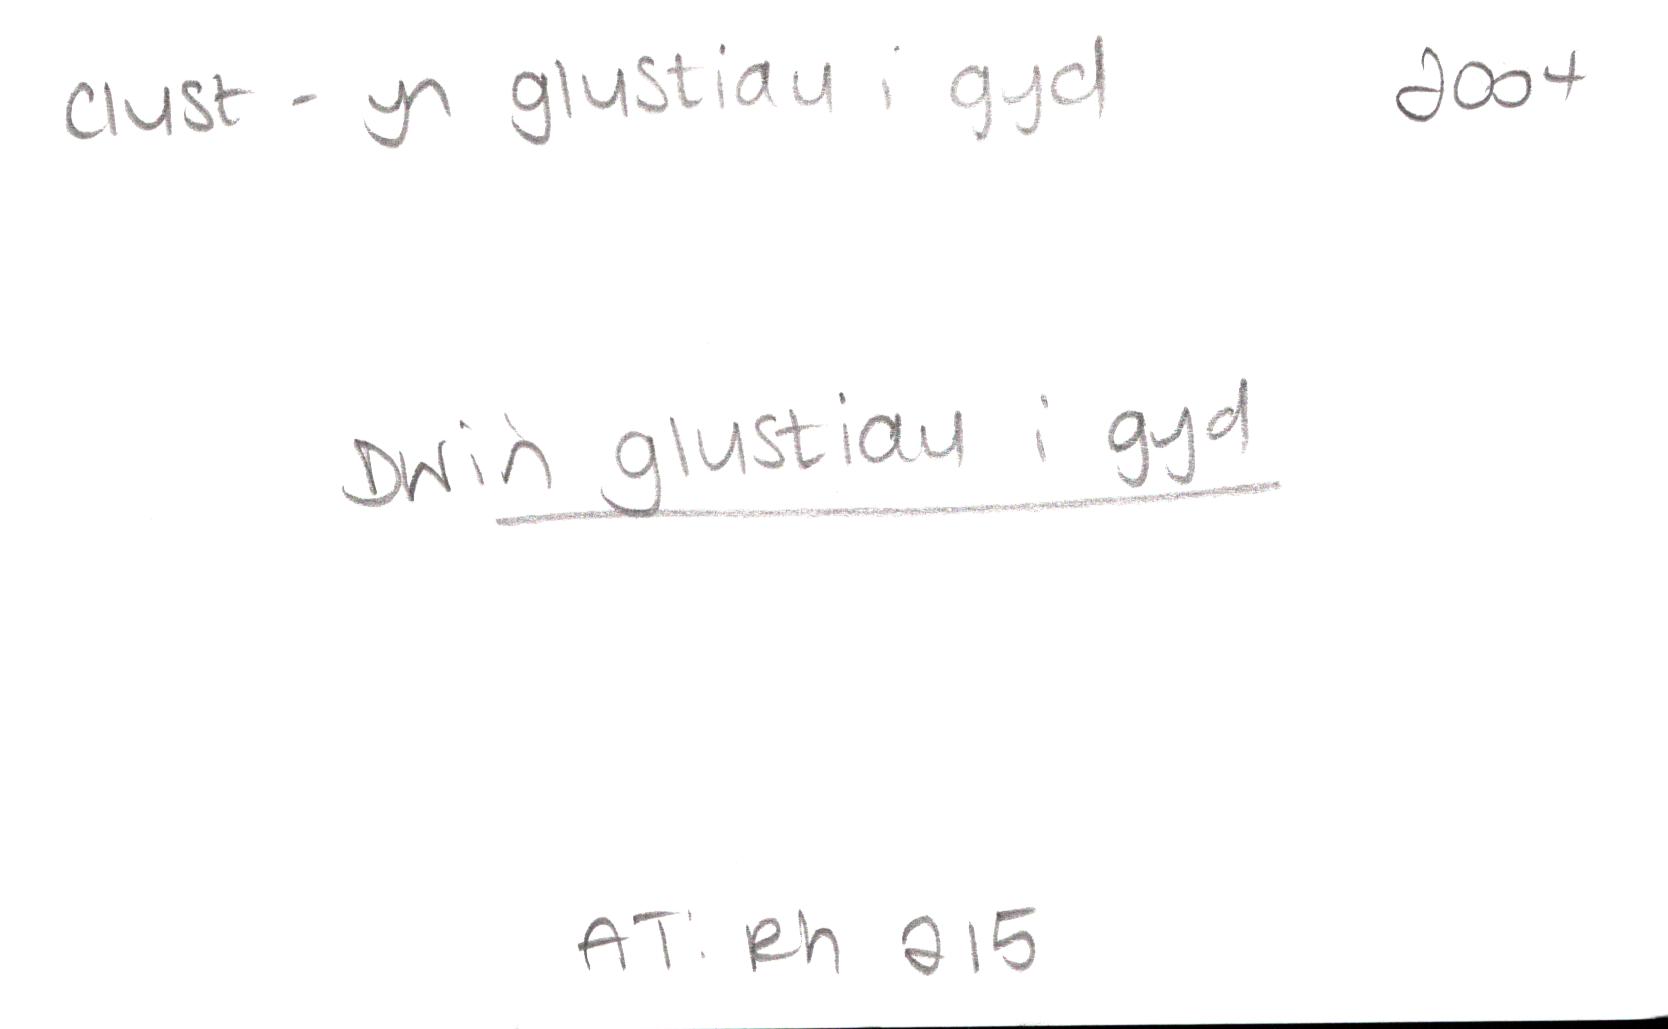 clust - yn glustiau i gyd 2004
Dwi'n glustiau i gyd
AT: Rh 215